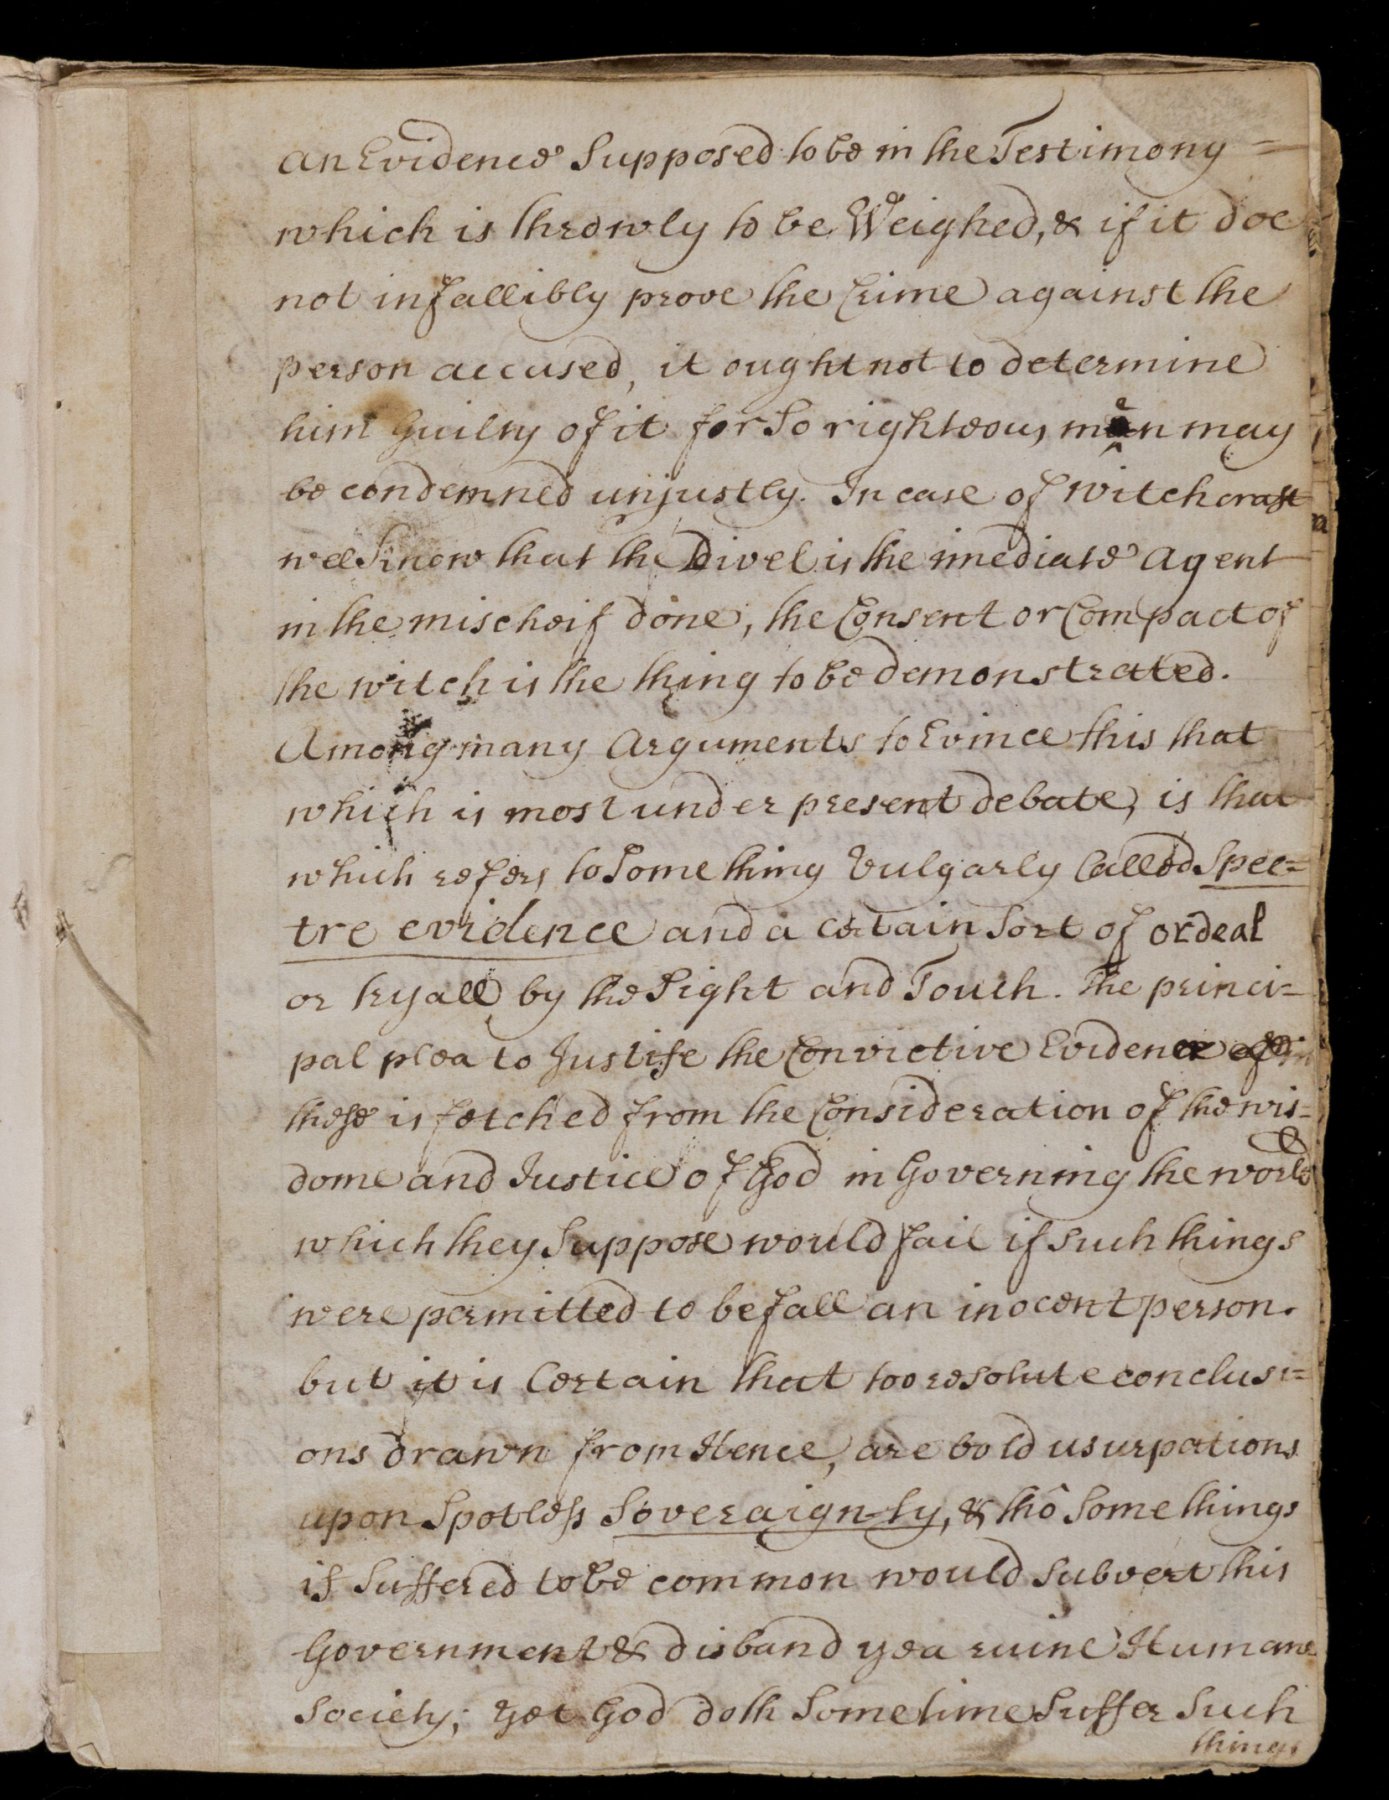 an Evidence Supposed to be in the Testimony =
which is throwly to be Weighed, & if it doe
not infallibly prove the Crime against the
person accused, it ought not to determine
him Guilty of it for So righteous men may
be condemned unjustly. In case of witchcraft
wee know that the Divel is the imediate Agent
in the mischeif done, the Consent or Compact of
the witch is the thing to be demonstrated.
Among many Arguments to Evince this that
which is most under present debate, is that
which refers to Something Vulgarly Called Spec=
tre evidence and a certain Sort of ordeal
or tryall by the Sight and Touch. The princi=
pal plea to Justife the Convictive Evidence in
these is fetched from the Consideration of the wis=
dome and Justice of God in Governing the world
which they Suppose would fail if Such things
were permitted to befall an inocent person.
but it is Certain that too resolute conclusi=
ons drawn from Hence, are bold usurpations
upon Spotless Soveraign-ty, & thô Some things
if Suffered to be common would Subvert this
Government & disband yea ruine Humane
Society; yet God doth Sometime Suffer Such
things